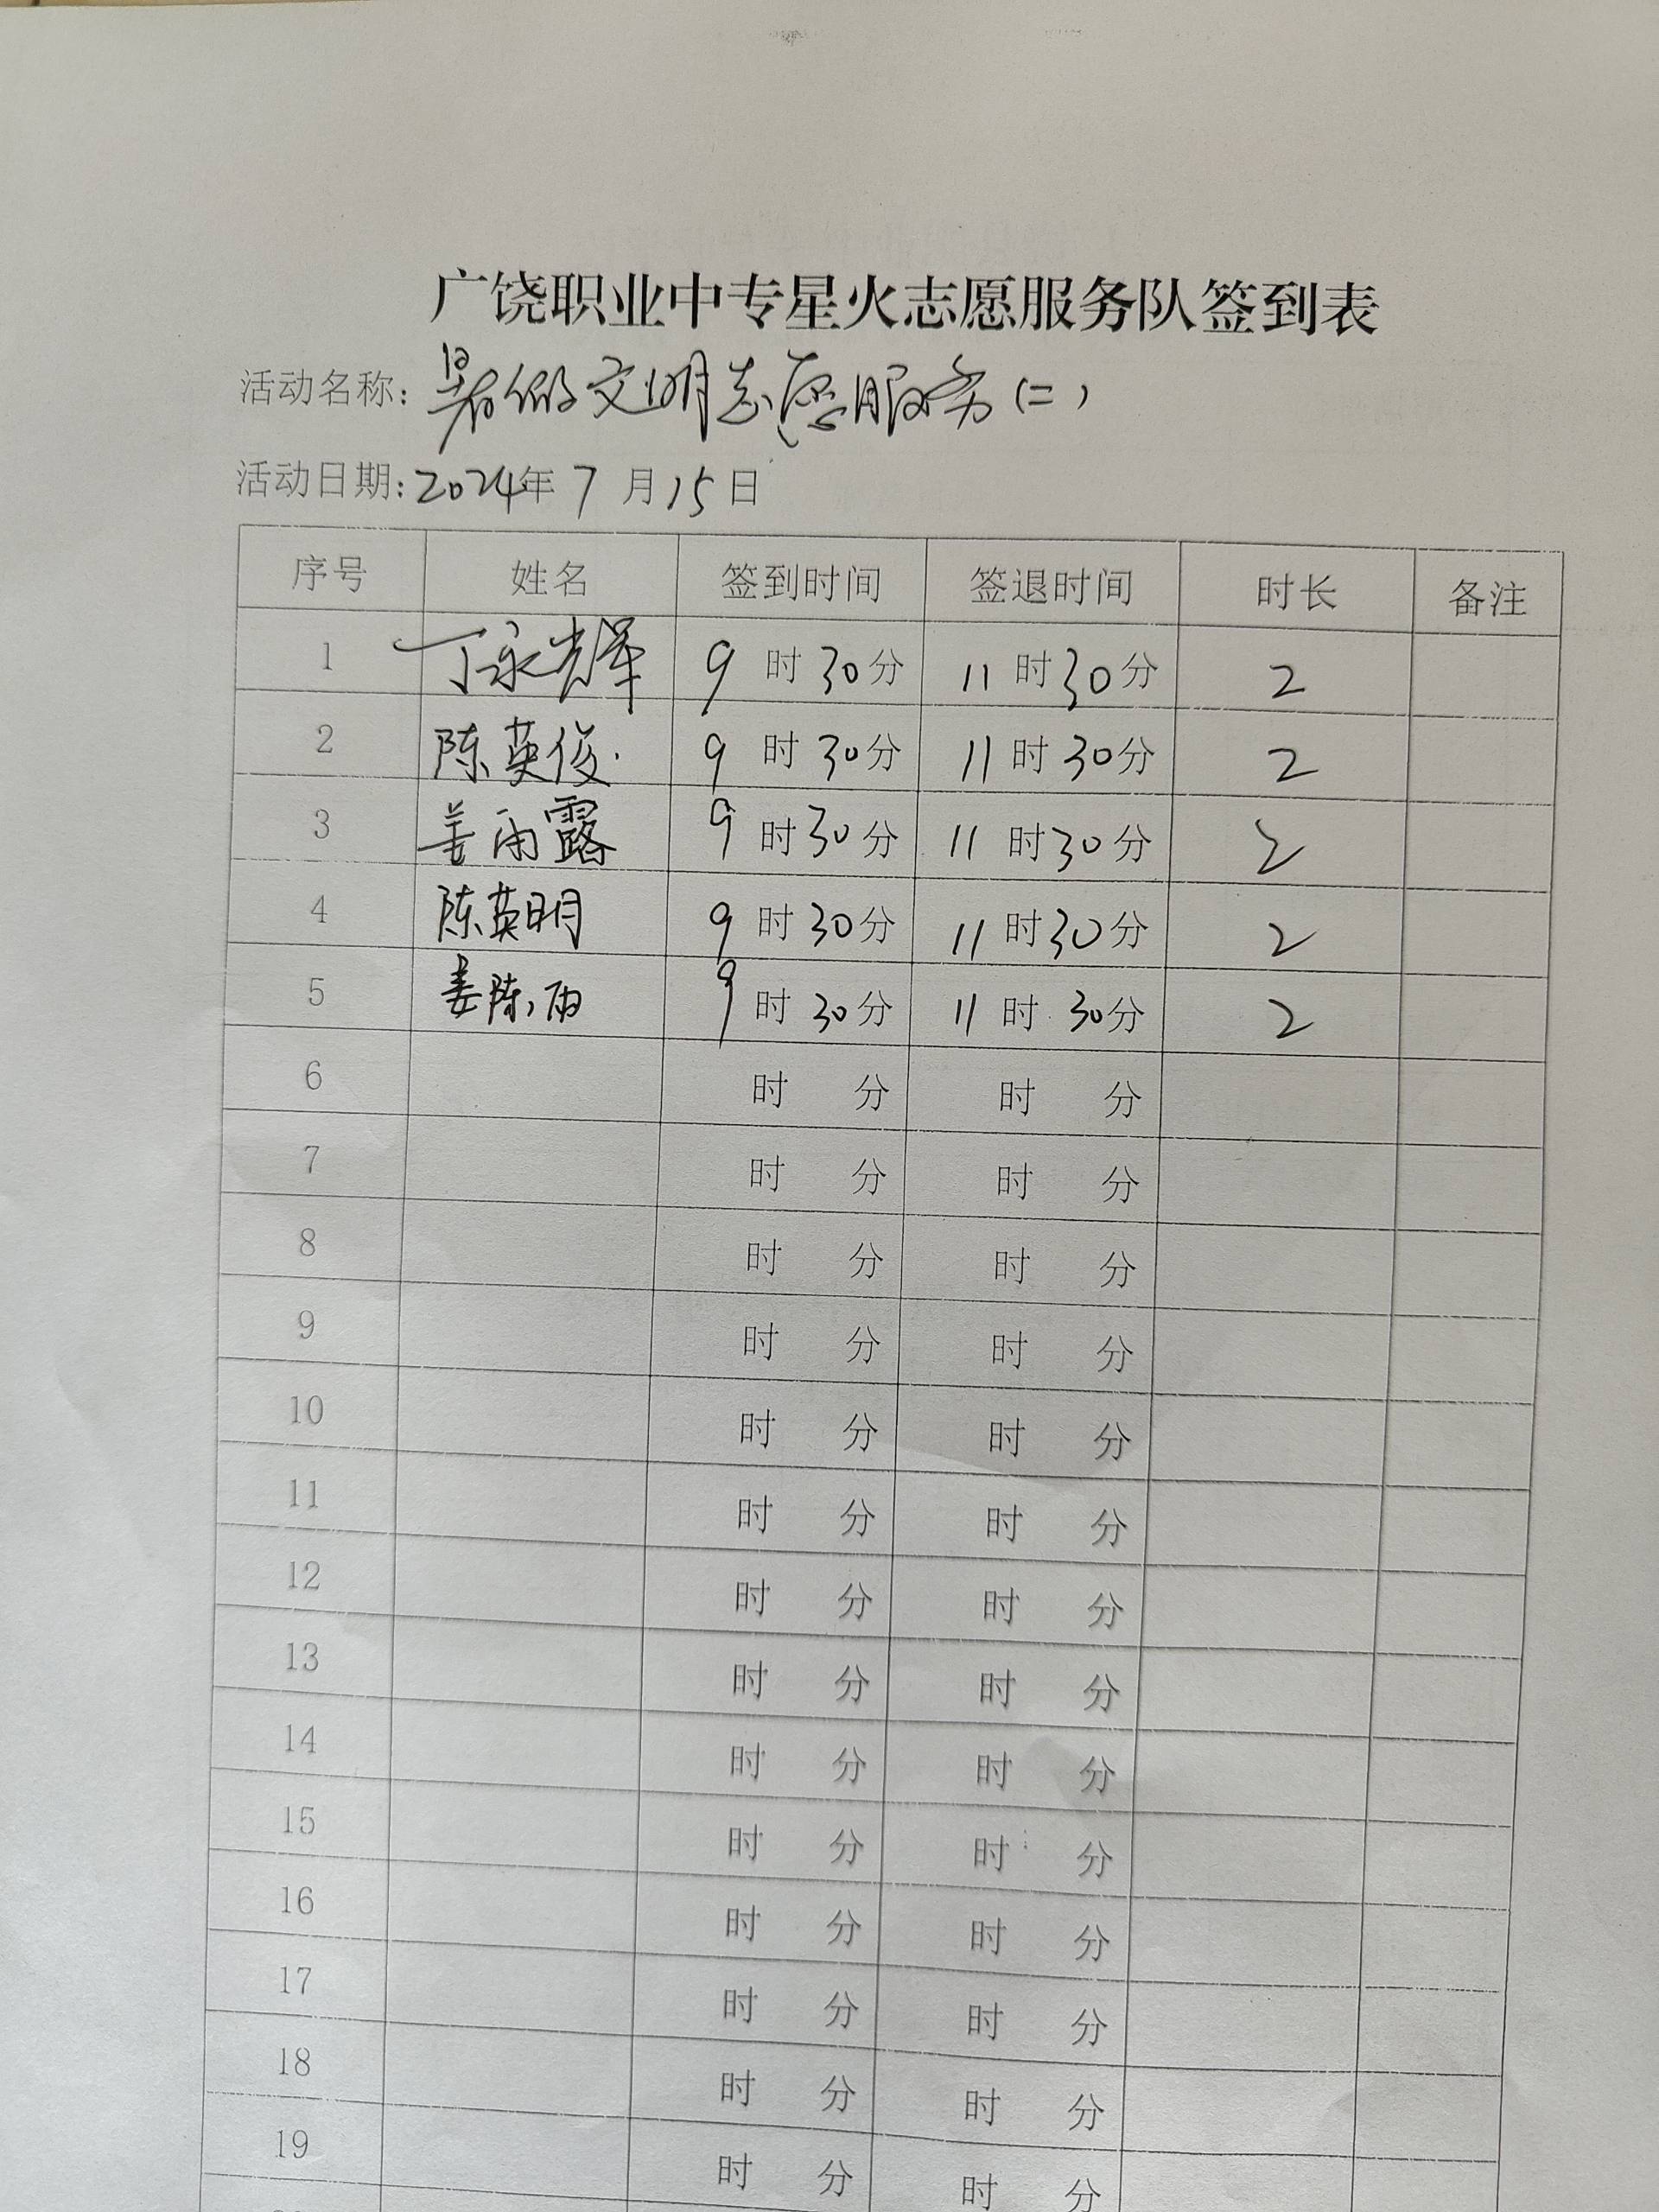 广饶职业中专星火志愿服务队签到表
活动名称: 暑假文明志愿服务(二)
活动日期: 2024年 7 月 15 日
序号 姓名 签到时间 签退时间 时长 备注
1 丁永辉 9 时 30 分 11 时 30 分 2
2 陈英俊 9 时 30 分 11 时 30 分 2
3 姜雨露 9 时 30 分 11 时 30 分 2
4 陈英明 9 时 30 分 11 时 30 分 2
5 姜陈雨 9 时 30 分 11 时 30 分 2
6 时 分 时 分
7 时 分 时 分
8 时 分 时 分
9 时 分 时 分
10 时 分 时 分
11 时 分 时 分
12 时 分 时 分
13 时 分 时 分
14 时 分 时 分
15 时 分 时 分
16 时 分 时 分
17 时 分 时 分
18 时 分 时 分
19 时 分 时 分